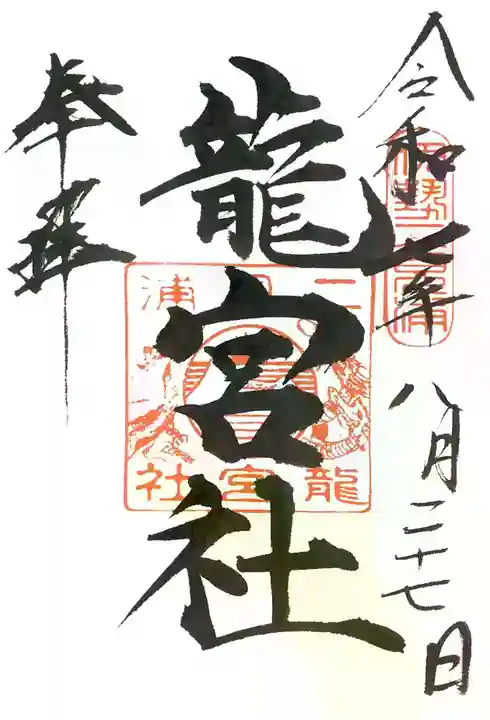 令和七年八月二十七日
伊勢二見浦
龍宮社
二見浦
龍宮社
奉拝